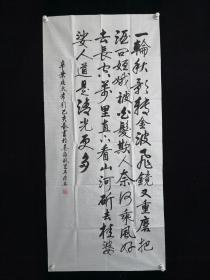 一輪秋影轉金波飛鏡又重磨把
酒问姮娥被白髮欺人奈何乘風好
去長空萬里直下看山河斫去桂婆
娑人道是清光更多
辛棄疾太常引己亥